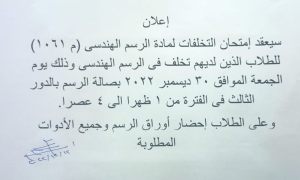 إعلان
سيعقد إمتحان التخلفات لمادة الرسم الهندسى (م ١٠٦١)
للطلاب الذين لديهم تخلف فى الرسم الهندسى وذلك يوم
الجمعة الموافق ٣٠ ديسمبر ٢٠٢٢ بصالة الرسم بالدور
الثالث فى الفترة من ١ ظهرا الى ٤ عصرا.
وعلى الطلاب إحضار أوراق الرسم وجميع الأدوات
المطلوبة